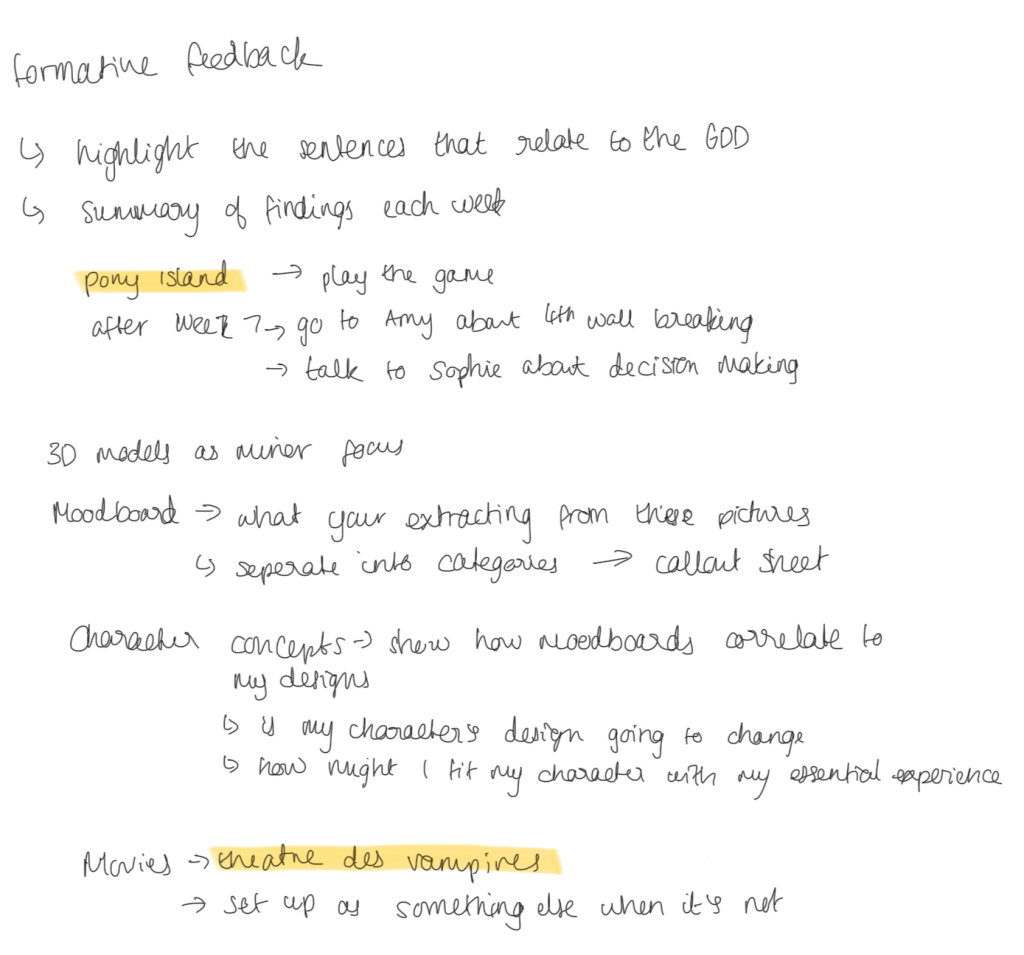 formative feedback
↳ highlight the sentences that relate to the GOD
↳ summary of findings each week
pony island → play the game
after week 7 → go to Amy about 4th wall breaking
→ talk to Sophie about decision making
3D models as minor focus
Moodboard → what your extracting from these pictures
↳ seperate into categories → callout sheet
Character concepts → show how moodboards correlate to
my designs
↳ is my character's design going to change
↳ how might I fit my character with my essential experience
Movies → theatre des vampires
→ set up as something else when it's not